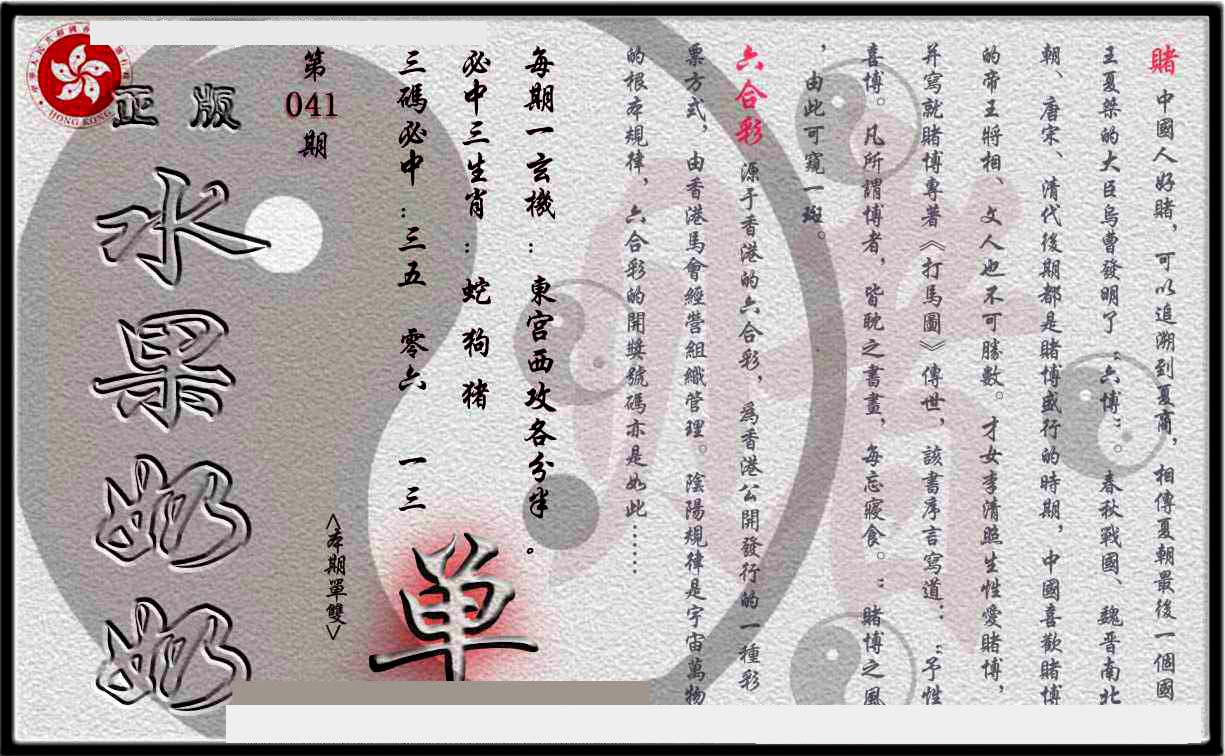 賭 中國人好賭，可以追溯到夏商，相傳夏朝最後一個國
王夏桀的大臣烏曹發明了“六博”。春秋戰國、魏晋南北
朝、唐宋、清代後期都是賭博盛行的時期，中國喜歡賭博
的帝王將相、文人也不可勝數。才女李清照生性愛賭博，
并寫就賭博專著《打馬圖》傳世，該書序言寫道：“予性
喜博。凡所謂博者，皆耽之書畫，每忘寢食。”賭博之風
，由此可窺一斑。
六合彩 源于香港的六合彩，為香港公開發行的一種彩
票方式，由香港馬會經營組織管理。陰陽規律是宇宙萬物
的根本規律，六合彩的開獎號碼亦是如此……
每期一玄機：東宮西攻各分半。
必中三生肖：蛇 狗 猪
三碼必中：三五 零六 一三
<本期單雙>
单
第
041
期
正版
水果奶奶
HONG KONG